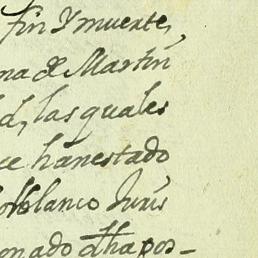 fin Y muerte,
ma de Martin
d, las quales
ce han estado
oblanco Juris
onado dha pos-